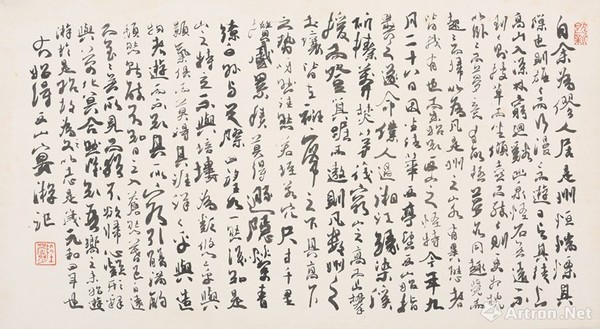 自余為僇人居是州恒惴慄其
隙也則施施而行漫漫而遊日與其徒上
高山入深林窮迴谿幽泉怪石無遠不
到到則披草而坐傾壺而醉醉則更相枕以
卧卧而夢意有所極夢亦同趣覺而
起起而歸以為凡是州之山水有異態者
皆我有也而未始知西山之怪特今年九
月二十八日因坐法華西亭望西山始指
異之遂命僕人過湘江緣染溪
斫榛莽焚茅茷窮山之高而止攀
援而登箕踞而遨則凡數州之
土壤皆在衽席之下其高下
之勢岈然洼然若垤若穴尺寸千里
攢蹙累積莫得遯隱縈青
繚白外與天際四望如一然後知是
山之特立不與培塿為類悠悠乎與
顥氣俱而莫得其涯洋洋乎與造
物者遊而不知其所窮引觴滿酌
頹然就醉不知日之入蒼然暮色自遠
而至至無所見而猶不欲歸心凝形釋
與萬化冥合然後知吾嚮之未始遊
遊於是乎始故為之文以志是歲元和四年也
右始得西山宴游記
Artron.Net